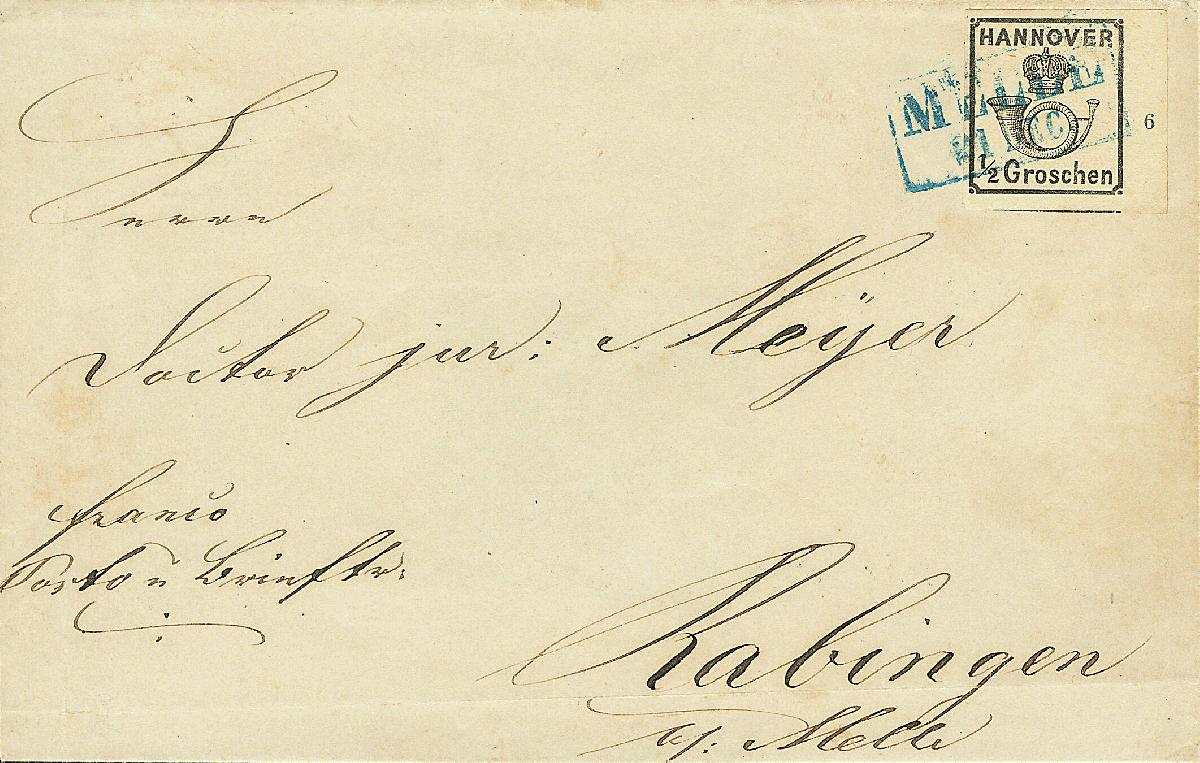 HANNOVER
MELLE
6
1/2 Groschen
Herrn
Doctor jur: Meÿer
franco
Porto u Brieftr:
Rabingen
b/: Melle